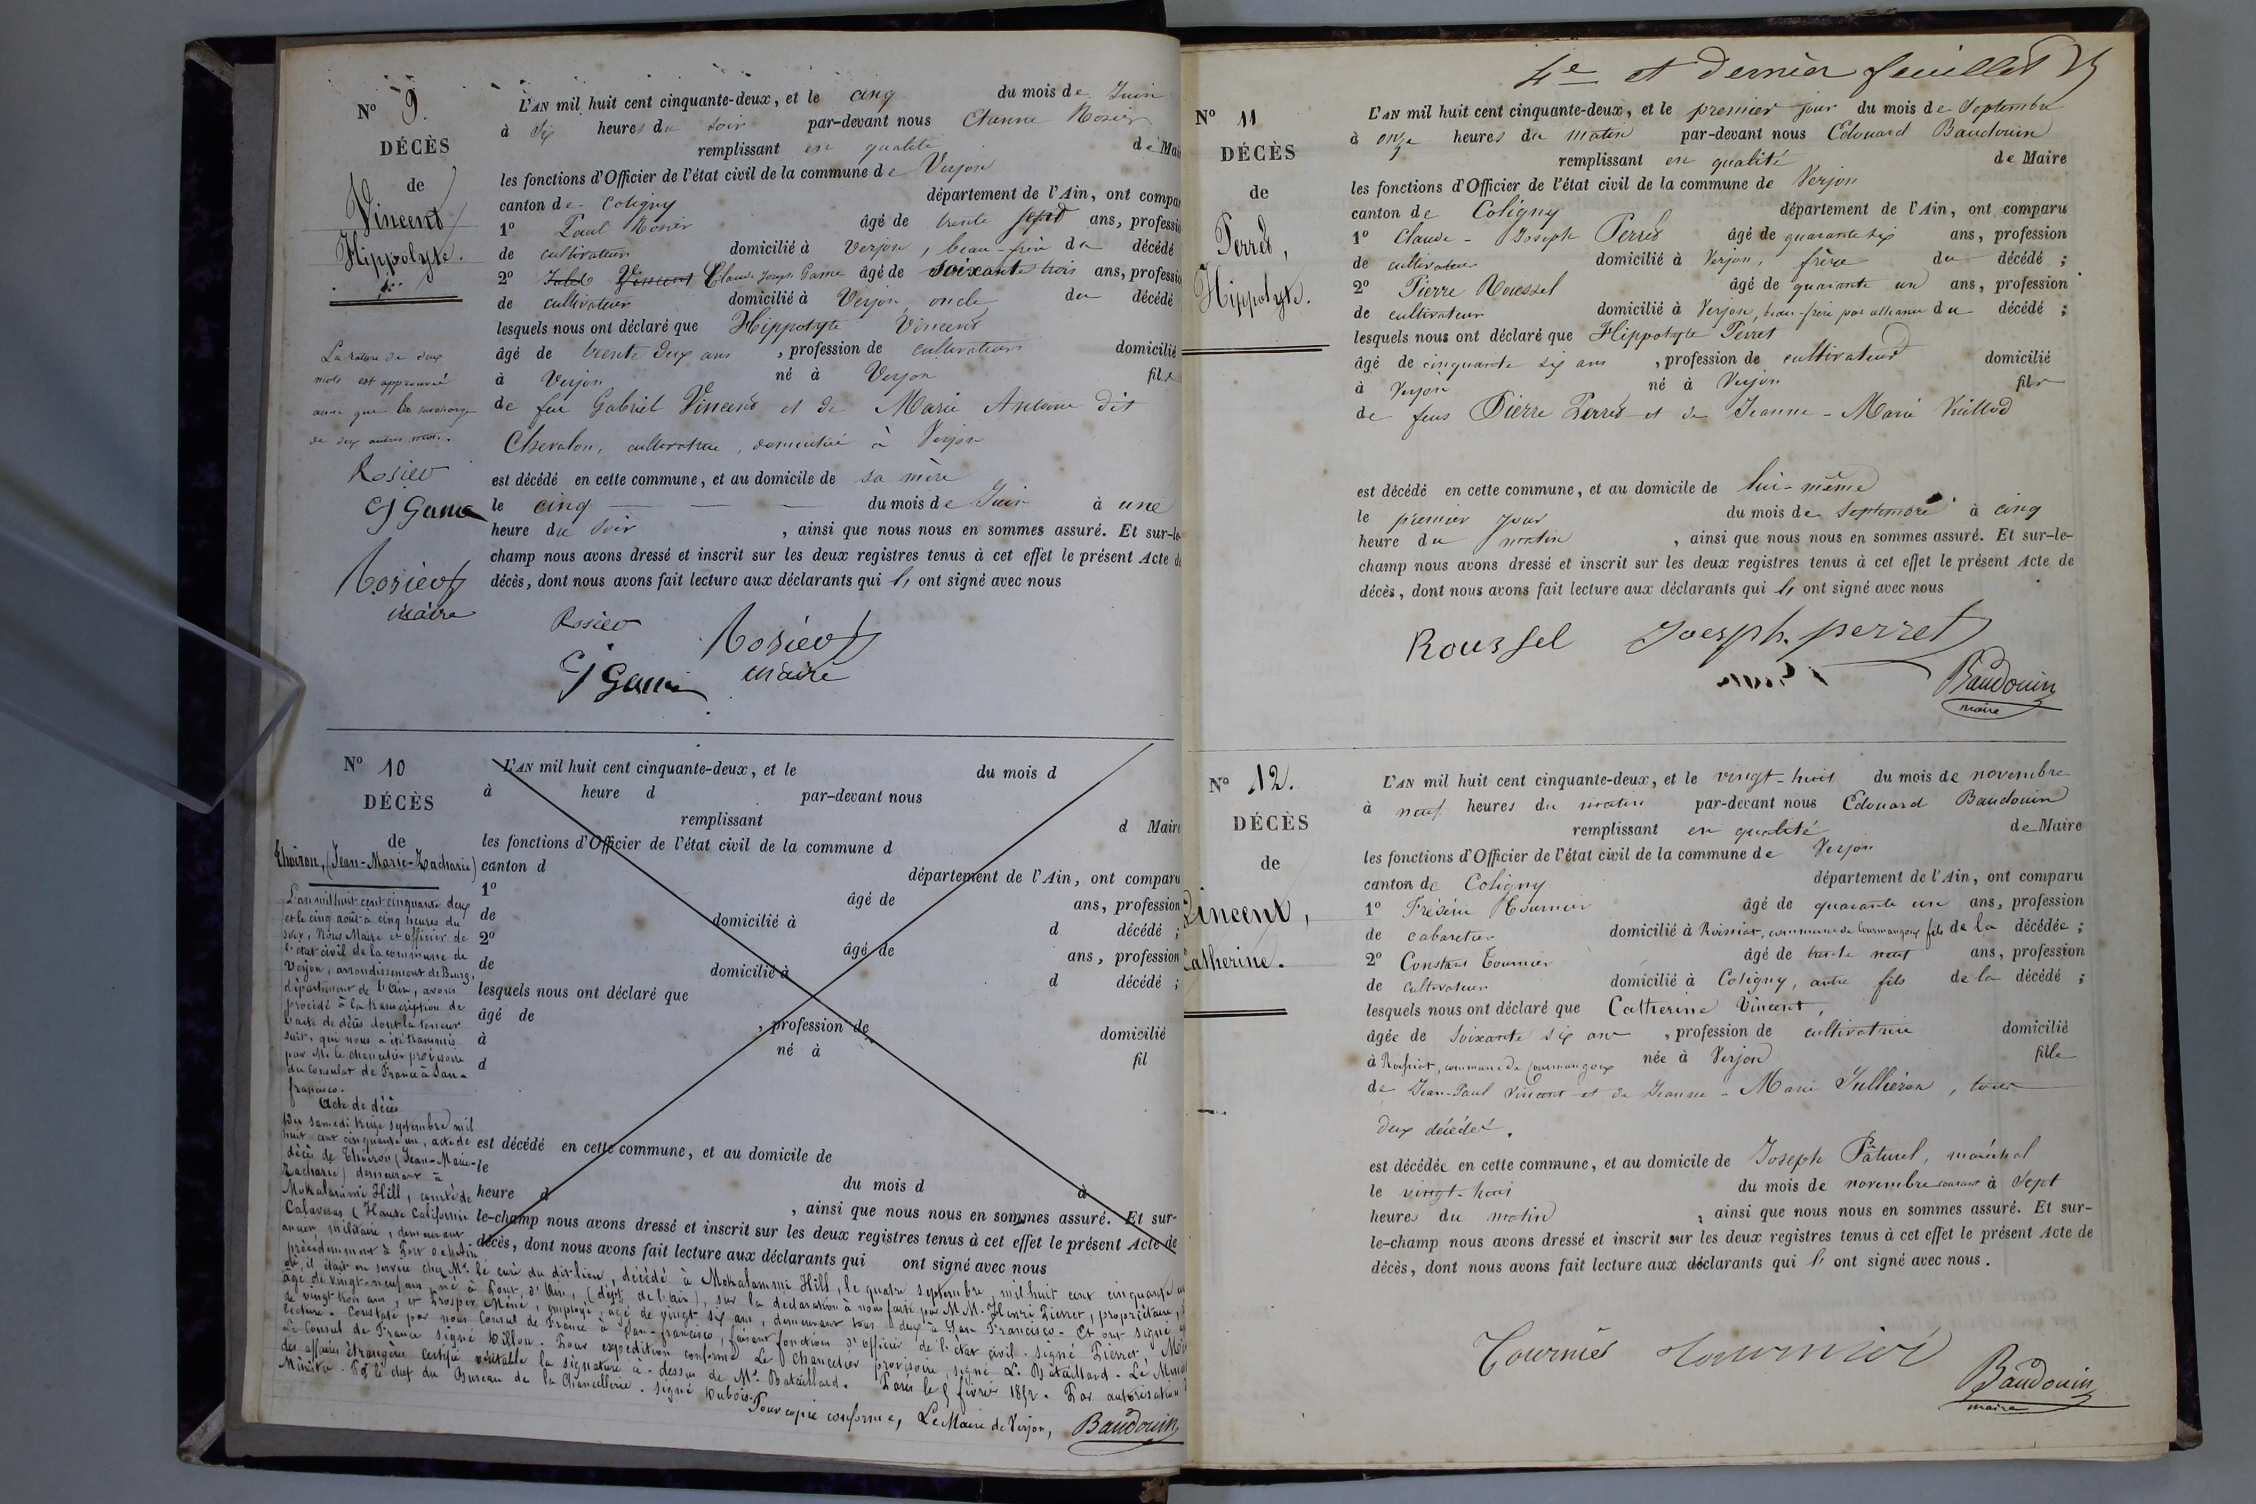 N° 9.
DÉCÈS
de
Vincent
Hippolyte.
L'AN mil huit cent cinquante-deux, et le cinq du mois de Juin
à six heures du soir par-devant nous Etienne Rosier
remplissant en qualité de Mai
les fonctions d'Officier de l'état civil de la commune de Verjon
canton de Coligny département de l'Ain, ont compa
1° Paul Rosier âgé de trente sept ans, professio
de cultivateur domicilié à Verjon, beau-frère du décédé
2° Vincent Claude Joseph Game âgé de soixante trois ans, professio
de cultivateur domicilié à Verjon, oncle du décédé
lesquels nous ont déclaré que Hippolyte Vincent
âgé de trente deux ans, profession de cultivateur domicilié
à Verjon né à Verjon fils
de feu Gabriel Vincent et de Marie Antoine dit
Chevalon, cultivatrice, domiciliée à Verjon
est décédé en cette commune, et au domicile de sa mère
le cinq du mois de Juin à une
heure du soir, ainsi que nous nous en sommes assuré. Et sur-le-
champ nous avons dressé et inscrit sur les deux registres tenus à cet effet le présent Acte de
décès, dont nous avons fait lecture aux déclarants qui ont signé avec nous
La rature de deux
mots est approuvée
ainsi que la surcharge
de deux autres mots.
Rosier
CJ Game
Rosier
maire
Rosier
Rosier
CJ Game
maire
N° 10
DÉCÈS
de
Thoiron, (Jean-Marie-Zacharie)
L'AN mil huit cent cinquante-deux, et le du mois d
à heure d par-devant nous
remplissant d Maire
les fonctions d'Officier de l'état civil de la commune d
canton d département de l'Ain, ont comparu
1° âgé de ans, profession
de domicilié à d décédé ;
2° âgé de ans, profession
de domicilié à d décédé ;
lesquels nous ont déclaré que
âgé de , profession de domicilié
à né à fil
d
est décédé en cette commune, et au domicile de
le du mois d à
heure d , ainsi que nous nous en sommes assuré. Et sur-
le-champ nous avons dressé et inscrit sur les deux registres tenus à cet effet le présent Acte de
décès, dont nous avons fait lecture aux déclarants qui ont signé avec nous
L'an mil huit cent cinquante deux
et le cinq août à cinq heures du
soir, Nous Maire et officier de
l'état civil de la commune de
Verjon, arrondissement de Bourg,
département de l'Ain, avons
procédé à la transcription de
l'acte de décès dont la teneur
suit, qui nous a été transmis
par Mr. le chancelier provisoire
du Consulat de France à San-
francisco.
Acte de décès
Du samedi treize septembre mil
huit cent cinquante un, acte de
décès de Thoiron (Jean-Marie-
Zacharie) demeurant à
Mokalamni Hill, comté de
Calaveras (Haute Californie
ancien militaire, demeurant
précédemment à
où, il était en service chez Mr. le curé du dit lieu, décédé à Mokalamni Hill, le quatre septembre, mil huit cent cinquante un
âgé de vingt-neuf ans, né à Pont d'Ain, (dépt. de l'Ain), sur la déclaration à nous faite par MM. Henri Pierret, propriétaire,
de vingt trois ans, et Prosper Méné, employé, âgé de vingt-six ans, demeurant tous deux à San Francisco. Et ont signé
lecture. Constaté par nous Consul de France à San-francisco, faisant fonctions d'officier de l'état civil. signé Pierret
Le Consul de France signé Dillon. Pour expédition conforme Le Chancelier provisoire, signé L. Bataillard. Le Minist
des affaires étrangères certifie véritable la signature ci-dessus de Mr. Bataillard. Paris le 5 février 1852. Par autorisation
Ministre. Pr le chef du Bureau de la Chancellerie. signé Dubois.
Pour copie conforme, Le Maire de Verjon, Baudouin
4e et dernier feuillet
N° 11
DÉCÈS
de
Perret,
Hippolyte.
L'AN mil huit cent cinquante-deux, et le premier jour du mois de Septembre
à onze heures du matin par-devant nous Edouard Baudouin
remplissant en qualité de Maire
les fonctions d'Officier de l'état civil de la commune de Verjon
canton de Coligny département de l'Ain, ont comparu
1° Claude-Joseph Perret âgé de quarante six ans, profession
de cultivateur domicilié à Verjon, frère du décédé ;
2° Pierre Roussel âgé de quarante un ans, profession
de cultivateur domicilié à Verjon, beau-frère par alliance du décédé ;
lesquels nous ont déclaré que Hippolyte Perret
âgé de cinquante six ans, profession de cultivateur domicilié
à Verjon né à Verjon fils
de feus Pierre Perret et de Jeanne-Marie Vuillod
est décédé en cette commune, et au domicile de lui-même
le premier jour du mois de Septembre à cinq
heure du matin, ainsi que nous nous en sommes assuré. Et sur-le-
champ nous avons dressé et inscrit sur les deux registres tenus à cet effet le présent Acte de
décès, dont nous avons fait lecture aux déclarants qui ont signé avec nous
Roussel Joesph. perret
Baudouin
maire
N° 12.
DÉCÈS
de
Vincent,
Catherine.
L'AN mil huit cent cinquante-deux, et le vingt-huit du mois de novembre
à neuf heures du matin par-devant nous Edouard Baudouin
remplissant en qualité de Maire
les fonctions d'Officier de l'état civil de la commune de Verjon
canton de Coligny département de l'Ain, ont comparu
1° Frédéric Tournier âgé de quarante un ans, profession
de cabaretier domicilié à Roissiat, commune de Courmangoux fils de la décédée ;
2° Constant Tournier âgé de trente neuf ans, profession
de cultivateur domicilié à Coligny, autre fils de la décédé ;
lesquels nous ont déclaré que Catherine Vincent,
âgée de soixante six ans, profession de cultivatrice domicilié
à Roissiat, commune de Courmangoux née à Verjon fille
de Jean-Paul Vincent et de Jeanne-Marie Jullieron, tous
deux décédés.
est décédée en cette commune, et au domicile de Joseph Pâturel, maréchal
le vingt-huit du mois de novembre courant à sept
heures du matin, ainsi que nous nous en sommes assuré. Et sur-
le-champ nous avons dressé et inscrit sur les deux registres tenus à cet effet le présent Acte de
décès, dont nous avons fait lecture aux déclarants qui ont signé avec nous.
Tournier tournier
Baudouin
maire